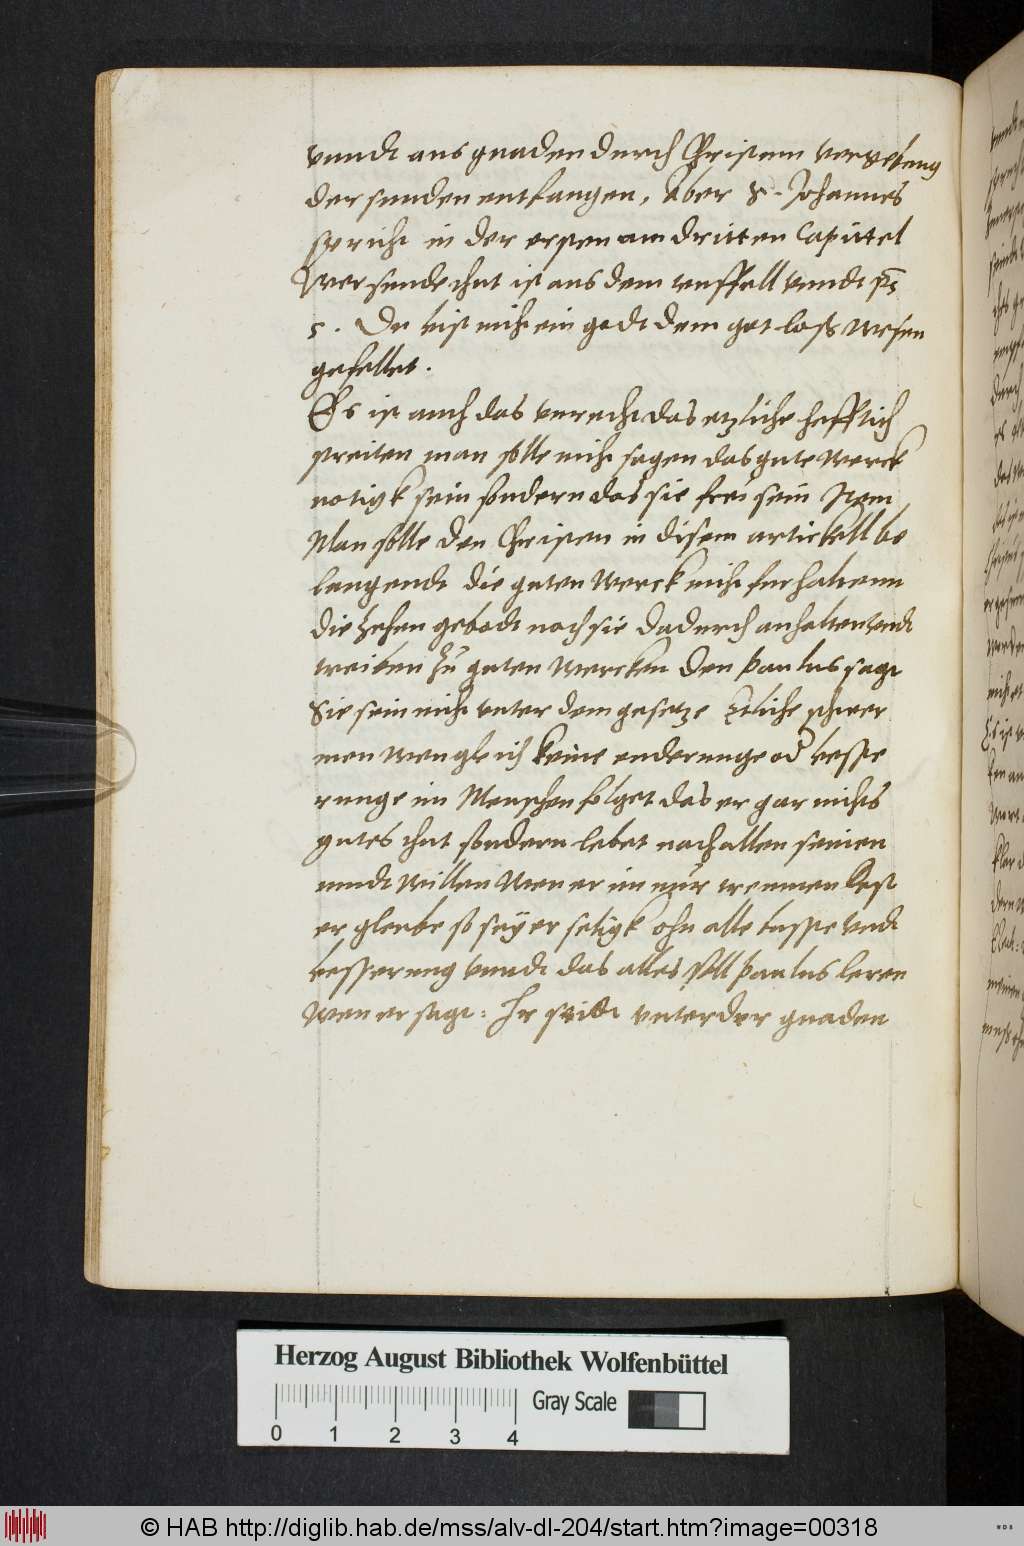 vnndt aus gnaden durch Christum vergebung
der sunden entfangen, Aber S. Johannes
spricht in der ersten am dritten Capittel
Wer sunde thut ist aus dem teuffell vnndt ps
5. Du bist nicht ein godt dem gotloß wesen
gefellet.
Es ist auch das vnrecht das etzliche hefftich
streiten man solle nicht sagen das gute Werck
notigk sein sondern das sie frei sein Item
Man solle den Christen in disem artickell be
langendt die guten Werck nicht furhaltenn
die zehen gebodt noch sie dadurch anhalten vndt
treiben zu guten Wercken den Paulus sagt
Sie sein nicht vnter dem gesetze Etliche schwer
men wen gleich keine enderunge od besse
runge im Menschen folget das er gar nichts
gutes thut sondern lebet nach allen seinen
mudtwillen Wen er im nur treumen lest
er gleube so sey er seligk ohn alle busse vndt
besserung vnndt das alles soll Paulus leren
Wen er sagt: Ihr seidt vnter der gnaden
Herzog August Bibliothek Wolfenbüttel
Gray Scale
0 1 2 3 4
© HAB http://diglib.hab.de/mss/alv-dl-204/start.htm?image=00318